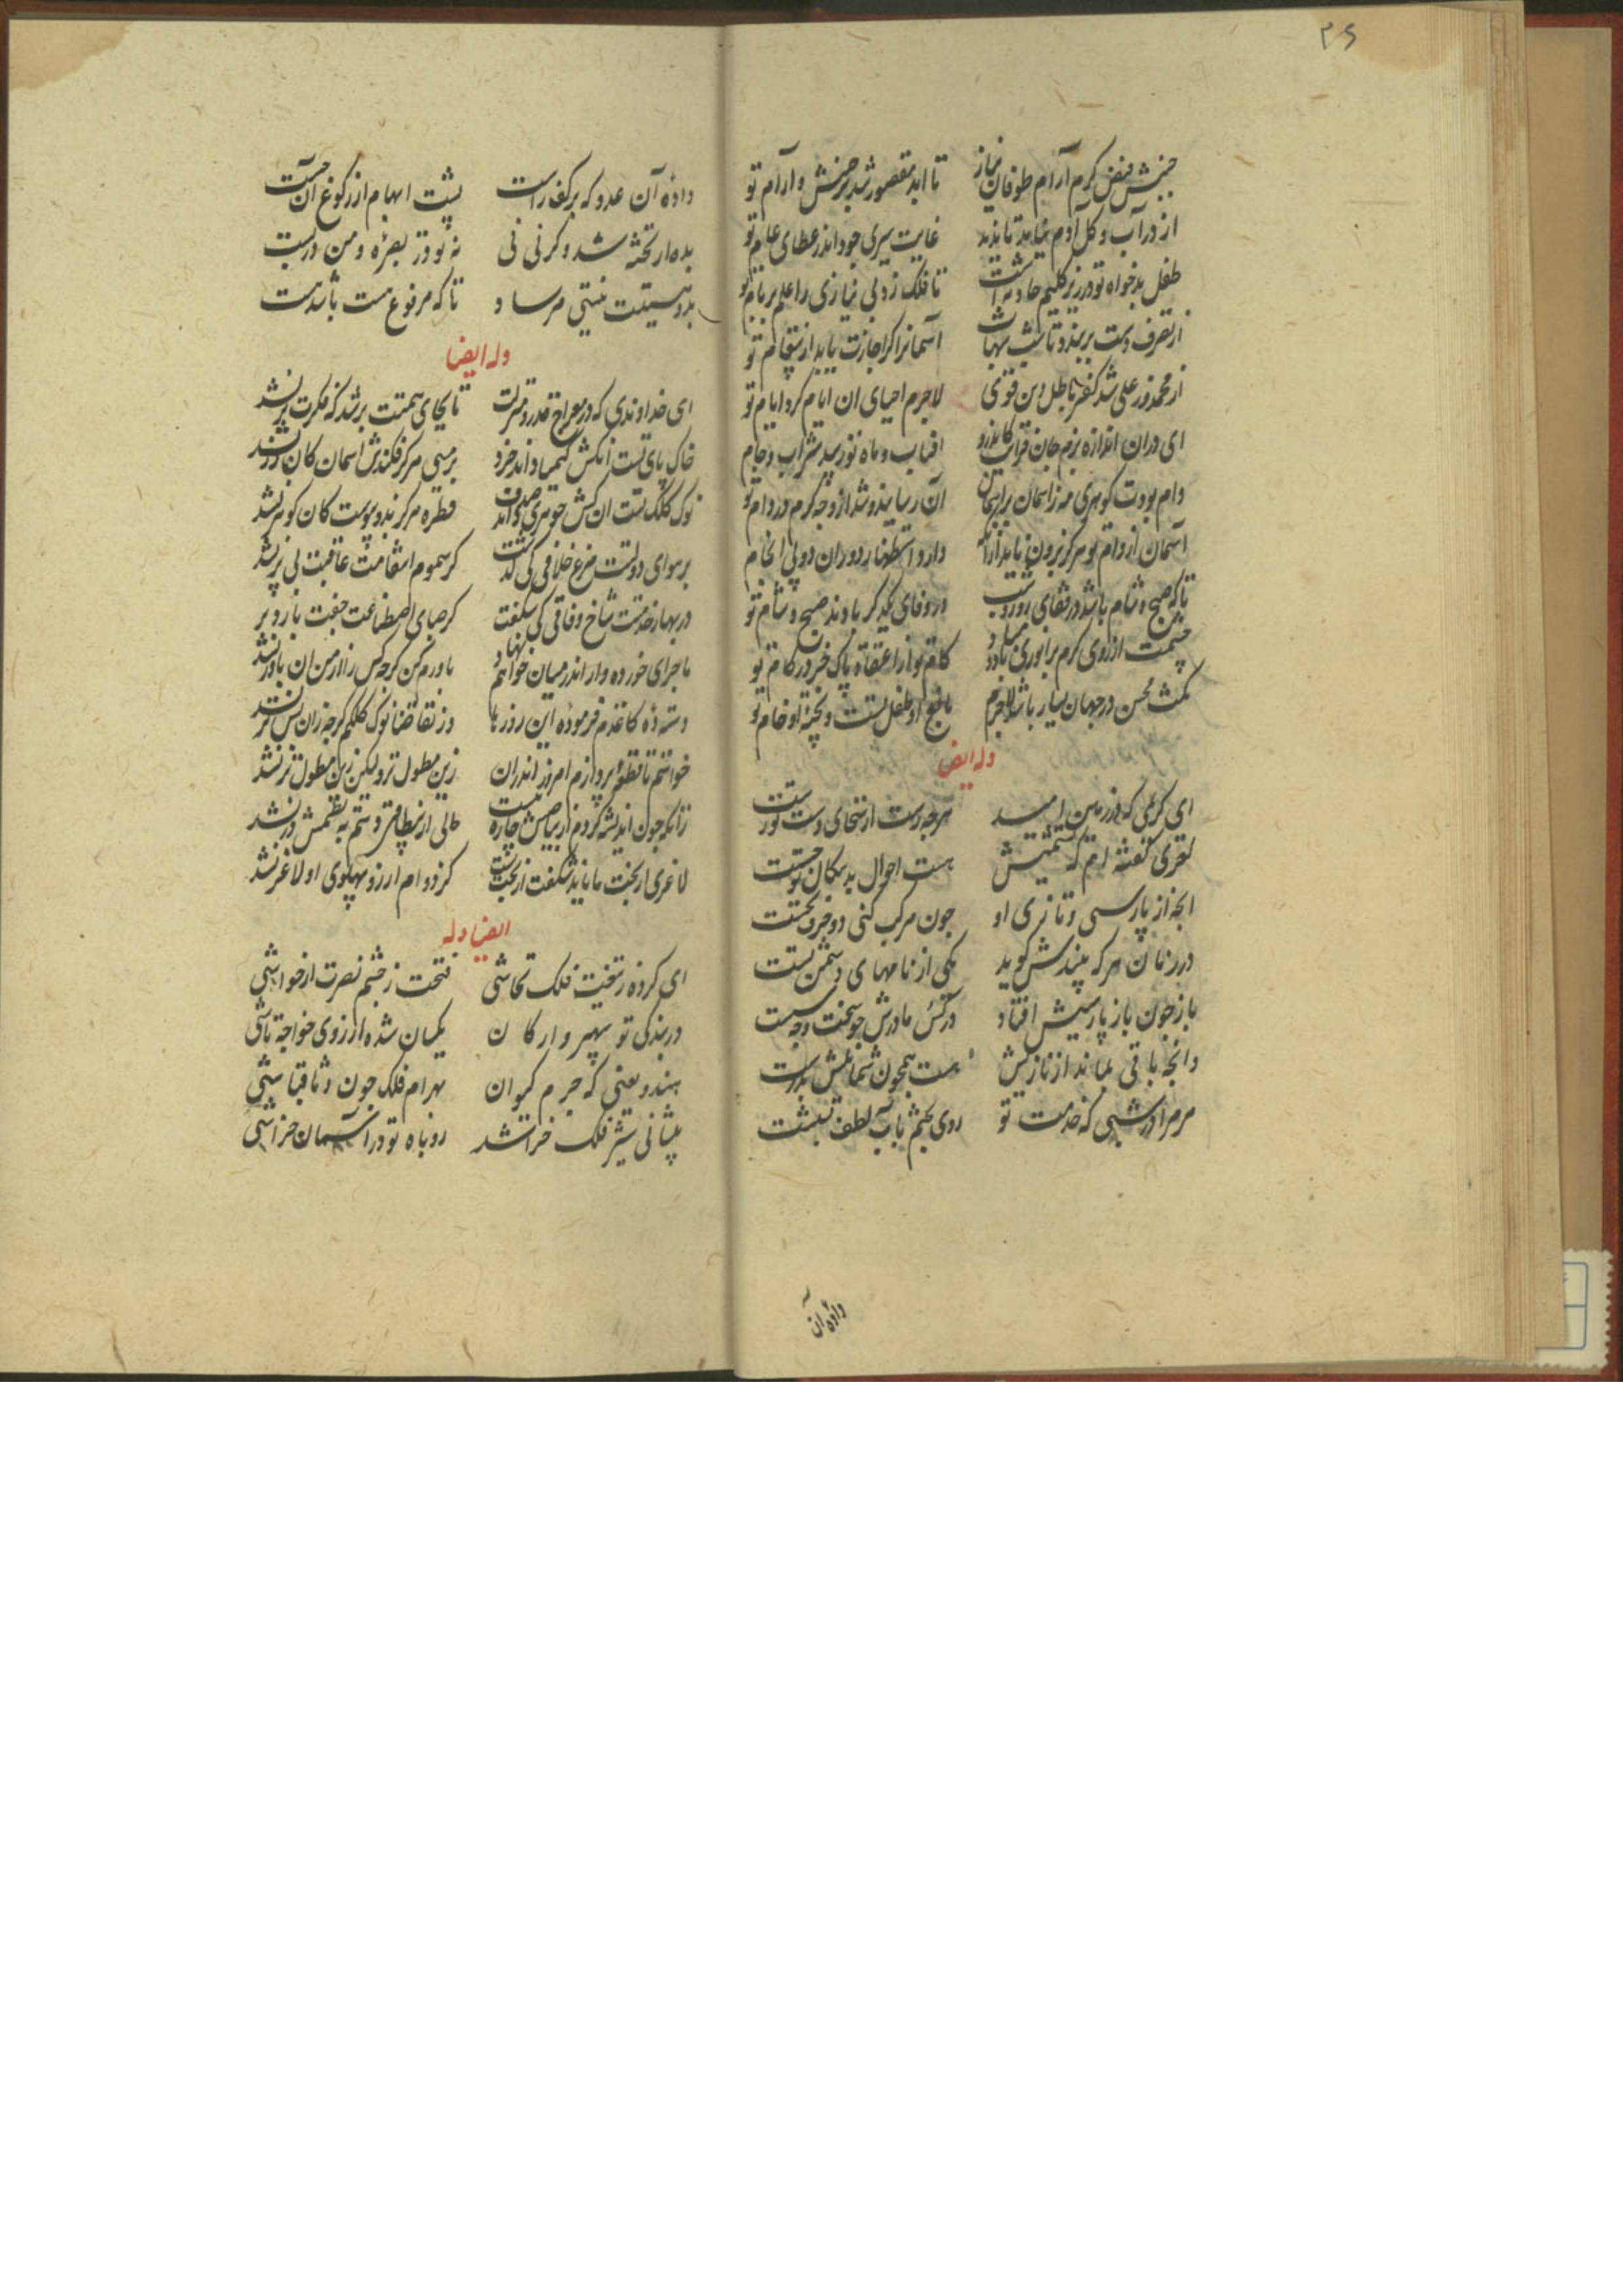 ۳۶
جنبش فیض کرم آرام طوفان نیاز
تا ابد مقصور شد بر جنبش و آرام تو
از در آب و گل آدم نیاید تا بدید
غایت سیری جود اندر عطای عام تو
طفل بدخواه تو در زیر گلیم حادثه است
تا فلک زد بی نیازی را علم بر بام تو
از تصرف دست بربندد
آسمانرا گر اجازت یابد از تو
از محمد وز علی شد کفر باطل دین قوی
لاجرم احیای ان ایام کرد ایام تو
ای در ان اندازه بزم جان
افتاب و ماه نو زیبد شراب و جام
دام بودت گوهری مه ز اسمان
آن رسانیدند و شد از وجه کرم در دام تو
آسمان از دام تو هرگز برون ناید ازانکه
دارد استظهار دوران دو پی انجام
تا که صبح و شام باشد در قفای روز و شب
در وفای یکدگر بادند صبح و شام تو
چشمت از روی کرم بر انوری بادو
کام تو از اعتقاد پاک خود در کام تو
کمت محسن در جهان بسیار باشد لاجرم
بالغ او طفل تست و پخته او خام تو
وله ایضا
ای کریمی که در زمین امید
هرچه رست از سخای دست تو رست
لغزی گفته ام که تشبیهش
هست احوال بدسگال تو چست
انچه از پارسی و تازی او
چون مرکب کنی دو حرف نخست
در زمان هر که بیندش گوید
یکی از نامهای دشمن تست
باز چون باز پارسیش افتاد
در کس مادرش چه سخت و چه سست
وانچه باقی بماند از تازیش
هست همچون شمایلش بدرست
مر مرا در شبی که خدمت تو
روی بختم باب لطف بشست
داده آن
داده آن عدد که بر کف راست
پشت ابهام از رکوع آن جست
بده ار پخته شد و گر نی نی
نه تو در بصره و من در بست
بدو هستیت نیستی مرساد
تا که مرفوع هست باشد هست
وله ایضا
ای خداوندی که در معراج قدر و منزلت
تا بجای همتت بر شد که فکرت بر نشد
خاک پای تست انکش کیمیا داند خرد
بر مسی هرگز فکندش اسمان کان زر نشد
نوک کلک تست ان کش جوهری داند صدف
قطره هرگز بدو پیوست کان گوهر نشد
بر هوای دولتت مرغ خلافی کی گذشت
کز سموم انتقامت عاقبت بی پر نشد
در بهار خدمتت شاخ وفاقی کی شکفت
کز صبای اصطناعت جفت بار و بر
ماجرای خورده وار اندر میان خواهم نهاد
باورم کن گرچه کس را از من ان باور نشد
دسته ده کاغذم فرموده این روزها
وز تقاضا نوک کلکم گرچه زان پس تر نشد
خواستم تا قطعه پردازم امروز اندران
زین مطول تر ولیکن زین مطول تر نشد
زانکه چون اندیشه کردم از بیاضش چاره نیست
حالی از نظامی دستم به نظمش در نشد
لاغری از بخت ما باشد شگفت از بخت نیست
کز دو ام ارزو پهلوی او لاغر نشد
ایضا وله
ای کرده ز تیغت فلک تحاشی
فتحت ز حشم نصرت از حواشی
در بندگی تو سپهر و ارکان
یکسان شده از روی خواجه تاشی
هندو یعنی که جرم کیوان
بهرام فلک چون وثاقباشی
پیشانی شیر فلک خراشد
روباه تو در آسمان خراشی